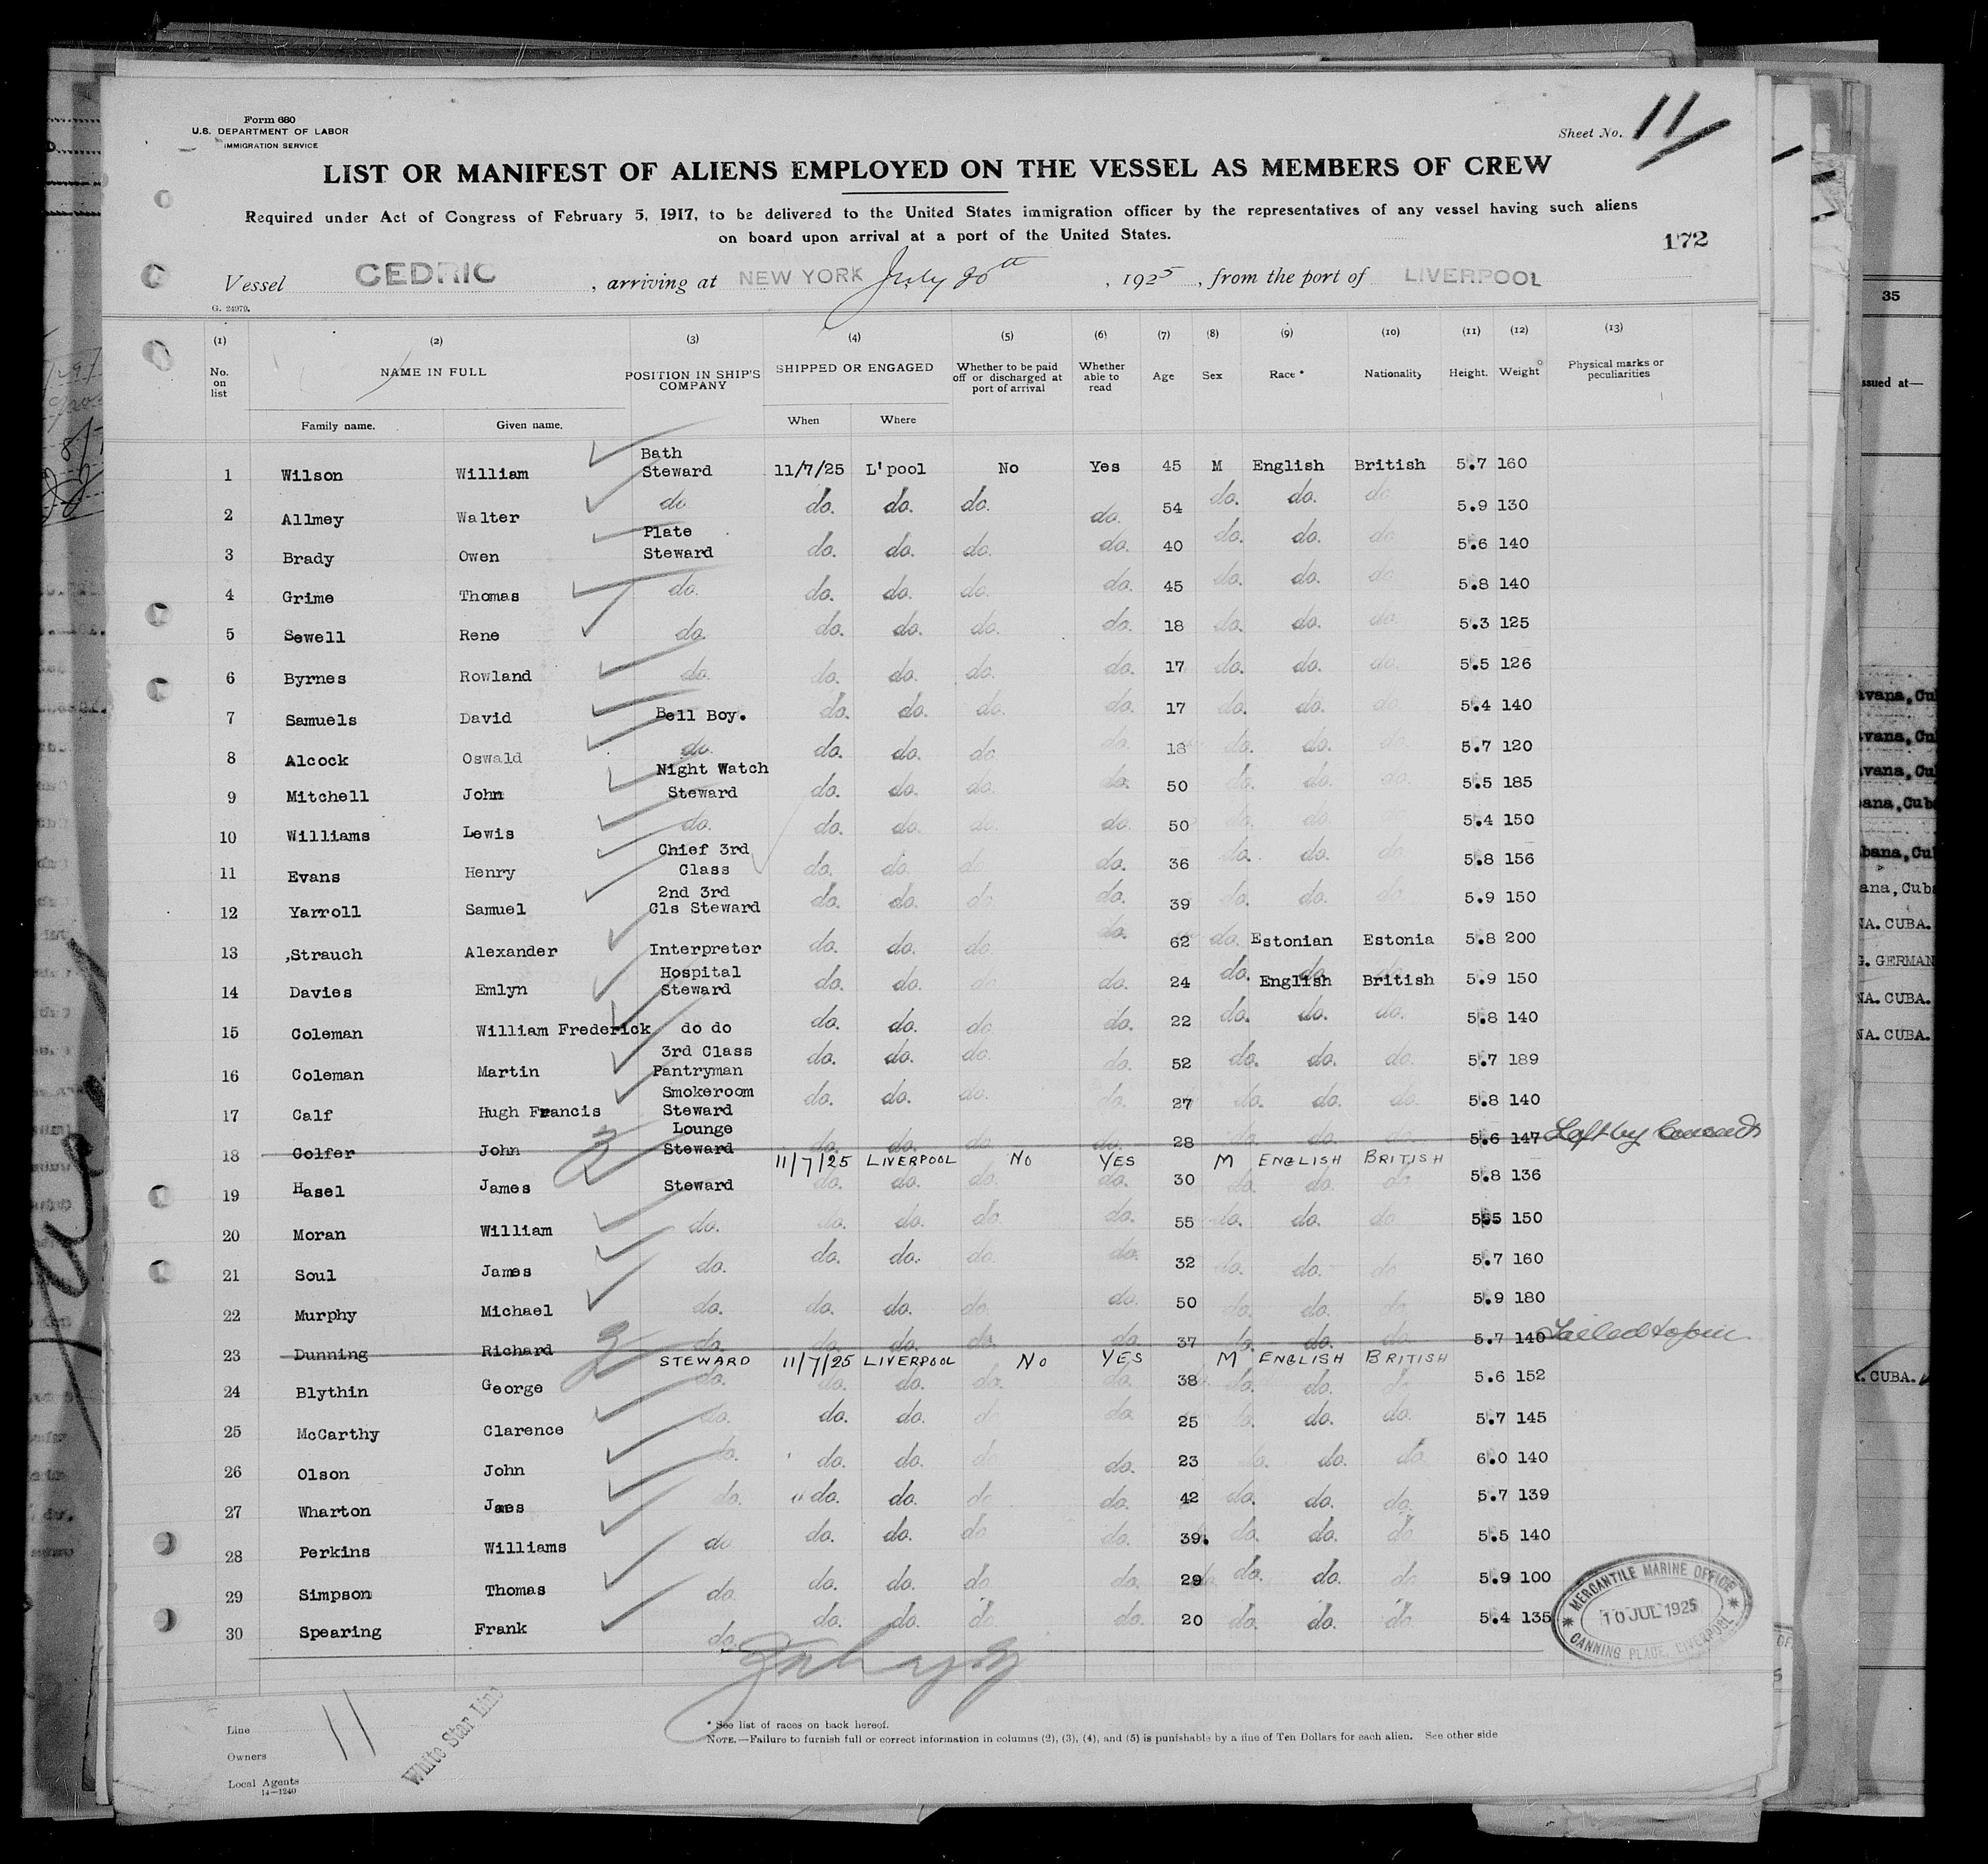 Form 680
U.S. DEPARTMENT OF LABOR
IMMIGRATION SERVICE
Sheet No. 11
LIST OR MANIFEST OF ALIENS EMPLOYED ON THE VESSEL AS MEMBERS OF CREW
Required under Act of Congress of February 5, 1917, to be delivered to the United States immigration officer by the representatives of any vessel having such aliens
on board upon arrival at a port of the United States.
172
Vessel CEDRIC, arriving at NEW YORK July 20th, 1925, from the port of LIVERPOOL
G. 24979.
(1) (2) (3) (4) (5) (6) (7) (8) (9) (10) (11) (12) (13)
No. on list NAME IN FULL POSITION IN SHIP'S COMPANY SHIPPED OR ENGAGED Whether to be paid off or discharged at port of arrival Whether able to read Age Sex Race * Nationality Height. Weight Physical marks or peculiarities
Family name. Given name. When Where
1 Wilson William Bath Steward 11/7/25 L'pool No Yes 45 M English British 5.7 160
2 Allmey Walter do do. do. do. do. 54 do. do. do 5.9 130
3 Brady Owen Plate Steward do. do. do. do. 40 do. do. do 5.6 140
4 Grime Thomas do. do. do. do. do. 45 do. do. do 5.8 140
5 Sewell Rene do. do. do. do. do. 18 do. do. do. 5.3 125
6 Byrnes Rowland do. do. do. do. do. 17 do. do. do. 5.5 126
7 Samuels David Bell Boy. do. do. do. do. 17 do. do. do. 5.4 140
8 Alcock Oswald do. do. do. do. do. 18 do. do. do 5.7 120
9 Mitchell John Night Watch Steward do. do. do. do. 50 do. do. do. 5.5 185
10 Williams Lewis do. do. do. do. do. 50 do. do. 5.4 150
11 Evans Henry Chief 3rd Class do. do. do do. 36 do. do. do. 5.8 156
12 Yarroll Samuel 2nd 3rd Cls Steward do. do. do. do. 39 do. do. do. 5.9 150
13 ,Strauch Alexander Interpreter do. do. do. do. 62 do. Estonian Estonia 5.8 200
14 Davies Emlyn Hospital Steward do. do. do do. 24 do. do. English British 5.9 150
15 Coleman William Frederick do do do. do. do do. 22 do. do. do. 5.8 140
16 Coleman Martin 3rd Class Pantryman do. do. do do. 52 do. do. do. 5.7 189
17 Calf Hugh Francis Smokeroom Steward do. do. do. do. 27 do. do. do. 5.8 140
18 Golfer John Lounge Steward do. do. do do. 28 do. do. do 5.6 147 Left by Consent
11/7/25 LIVERPOOL No YES M ENGLISH BRITISH
19 Hasel James Steward do. do. do. do. 30 do. do. do 5.8 136
20 Moran William do. do. do. do. do. 55 do. do. do 555 150
21 Soul James do. do. do. do. do. 32 do. do. do 5.7 160
22 Murphy Michael do. do. do. do. do. 50 do. do. do 5.9 180
23 Dunning Richard do. do. do. do. do. 37 do. do. do 5.7 140 Failed to join
STEWARD 11/7/25 LIVERPOOL No YES M ENGLISH BRITISH
24 Blythin George do. do. do. do. do. 38 do. do. do 5.6 152
25 McCarthy Clarence do. do. do. do do. 25 do. do. do. 5.7 145
26 Olson John do. do. do. do do. 23 do. do. do. 6.0 140
27 Wharton James do. do. do. do do. 42 do. do. do. 5.7 139
28 Perkins Williams do do. do. do do. 39. do. do. do 5.5 140
29 Simpson Thomas do. do. do. do do. 29 do. do. do 5.9 100
30 Spearing Frank do. do. do. do. do. 20 do. do. do 5.4 135
* MERCANTILE MARINE OFFICE *
10 JUL 1925
CANNING PLACE, LIVERPOOL
Line
Owners
Local Agents
14—1240
11
White Star Line
* See list of races on back hereof.
NOTE.—Failure to furnish full or correct information in columns (2), (3), (4), and (5) is punishable by a fine of Ten Dollars for each alien. See other side
35
ssued at—
NA. CUBA.
G. GERMAN
NA. CUBA.
NA. CUBA.
. CUBA.